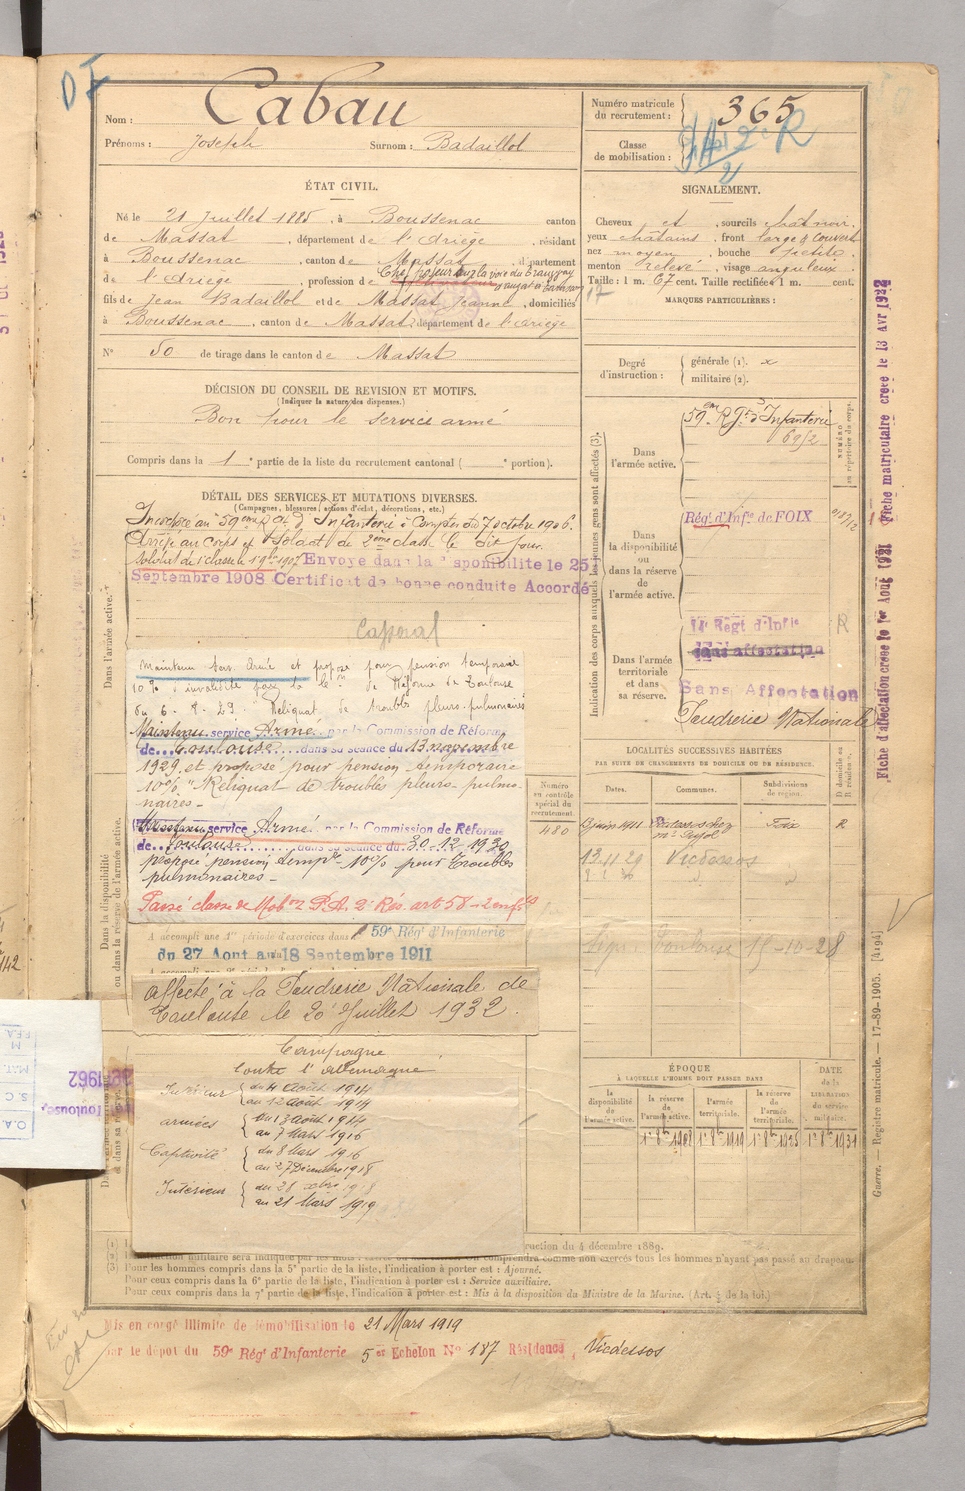 Nom : Cabau
Prénoms : Joseph Surnom : Badaillol
Numéro matricule du recrutement : 365
Classe de mobilisation :
ÉTAT CIVIL.
Né le 21 Juillet 1885, à Boussenac canton
de Massat, département de l'Ariège, résidant
à Boussenac, canton de Massat, département
de l'Ariège, profession de
fils de Jean Badaillol et de Massat Jeanne, domiciliés
à Boussenac, canton de Massat, département de l'Ariège
N° 50 de tirage dans le canton de Massat
SIGNALEMENT.
Cheveux et, sourcils chât noir,
yeux châtains, front large & couvert
nez moyen, bouche petite,
menton relevé, visage anguleux.
Taille : 1 m. 67 cent. Taille rectifiée : 1 m. cent.
MARQUES PARTICULIÈRES :
DÉCISION DU CONSEIL DE REVISION ET MOTIFS.
(Indiquer la nature des dispenses.)
Bon pour le service armé
Compris dans la 1e partie de la liste du recrutement cantonal ( e portion).
Degré d'instruction : générale (1). x
militaire (2).
DÉTAIL DES SERVICES ET MUTATIONS DIVERSES.
(Campagnes, blessures, actions d'éclat, décorations, etc.)
Incorporé au 59eme Rgt d'Infanterie à compter du 7 octobre 1906.
Arrivé au corps et soldat de 2eme classe le dit jour.
Soldat de 1e classe le 19 1907 Envoyé dans la disponibilité le 25
Septembre 1908 Certificat de bonne conduite Accordé
Caporal
Maintenu serv. Armé et proposé pour pension temporaire
10 % d'invalidité par la de Réforme de Toulouse
du 6-8-29. Reliquat de troubles pleuro-pulmonaires
Maintenu service Armé par la Commission de Réforme
de Toulouse dans sa séance du 13 novembre
1929 et proposé pour pension temporaire
10% "Reliquat de troubles pleuro-pulmo-
naires-
Maintenu service Armé par la Commission de Réforme
de Toulouse dans sa séance du 30-12-1930
proposé pension temp 10% pour troubles
pulmonaires-
Passé classe de Mobon P.A. 2e Rés. art 58 - 2 enfts
A accompli une 1re période d'exercices dans le 59e Rég' d'Infanterie
du 27 Aout au 18 Septembre 1911
Affecté à la Poudrerie Nationale de
Toulouse le 20 Juillet 1932.
Campagne
Contre l'Allemagne
Intérieur du 4 Août 1914
au 12 août 1914
armées du 13 août 1914
au 7 Mars 1916
Captivité du 8 Mars 1916
au 27 Décembre 1918
Intérieur du 28 xbre 1918
au 21 Mars 1919
Indication des corps auxquels les jeunes gens sont affectés (3).
Dans l'armée active. 59em Rgt d'Infanterie
NUMÉRO au répertoire du corps.
Dans la disponibilité ou dans la réserve de l'armée active. Régt d'Infie de FOIX
Dans l'armée territoriale et dans sa réserve. 14e Regt d'Infie
Sans affectation
Sans Affectation
Poudrerie Nationale
R
LOCALITÉS SUCCESSIVES HABITÉES
PAR SUITE DE CHANGEMENTS DE DOMICILE OU DE RÉSIDENCE.
Numéro au contrôle spécial du recrutement. Dates. Communes. Subdivisions de région. D domicile ou R résidence.
480 Juin 1911 Foix R
13 11 29 Vicdessos
Toulouse 15-10-28
ÉPOQUE
À LAQUELLE L'HOMME DOIT PASSER DANS
la disponibilité de l'armée active. la réserve de l'armée active. l'armée territoriale. la réserve de l'armée territoriale. DATE de la LIBÉRATION du service militaire.
1er 8bre 1908 1er 8bre 1919 1er 8bre 1925 1er 8bre 1931
Fiche d'affectation créée le 1er Aout 1921 Fiche matriculaire créée le 13 Avr 1922
Guerre. — Registre matricule. — 17-89-1905. [4194]
ruction du 4 décembre 1889.
comprendra comme non exercés tous les hommes n'ayant pas passé au drapeau.
(3) Pour les hommes compris dans la 5e partie de la liste, l'indication à porter est : Ajourné.
Pour ceux compris dans la 6e partie de la liste, l'indication à porter est : Service auxiliaire.
Pour ceux compris dans la 7e partie de la liste, l'indication à porter est : Mis à la disposition du Ministre de la Marine. (Art. 4 de la loi.)
Mis en congé illimité de démobilisation le 21 Mars 1919
par le dépot du 59e Rég' d'Infanterie 5e Echelon N° 187 Résidence, Vicdessos